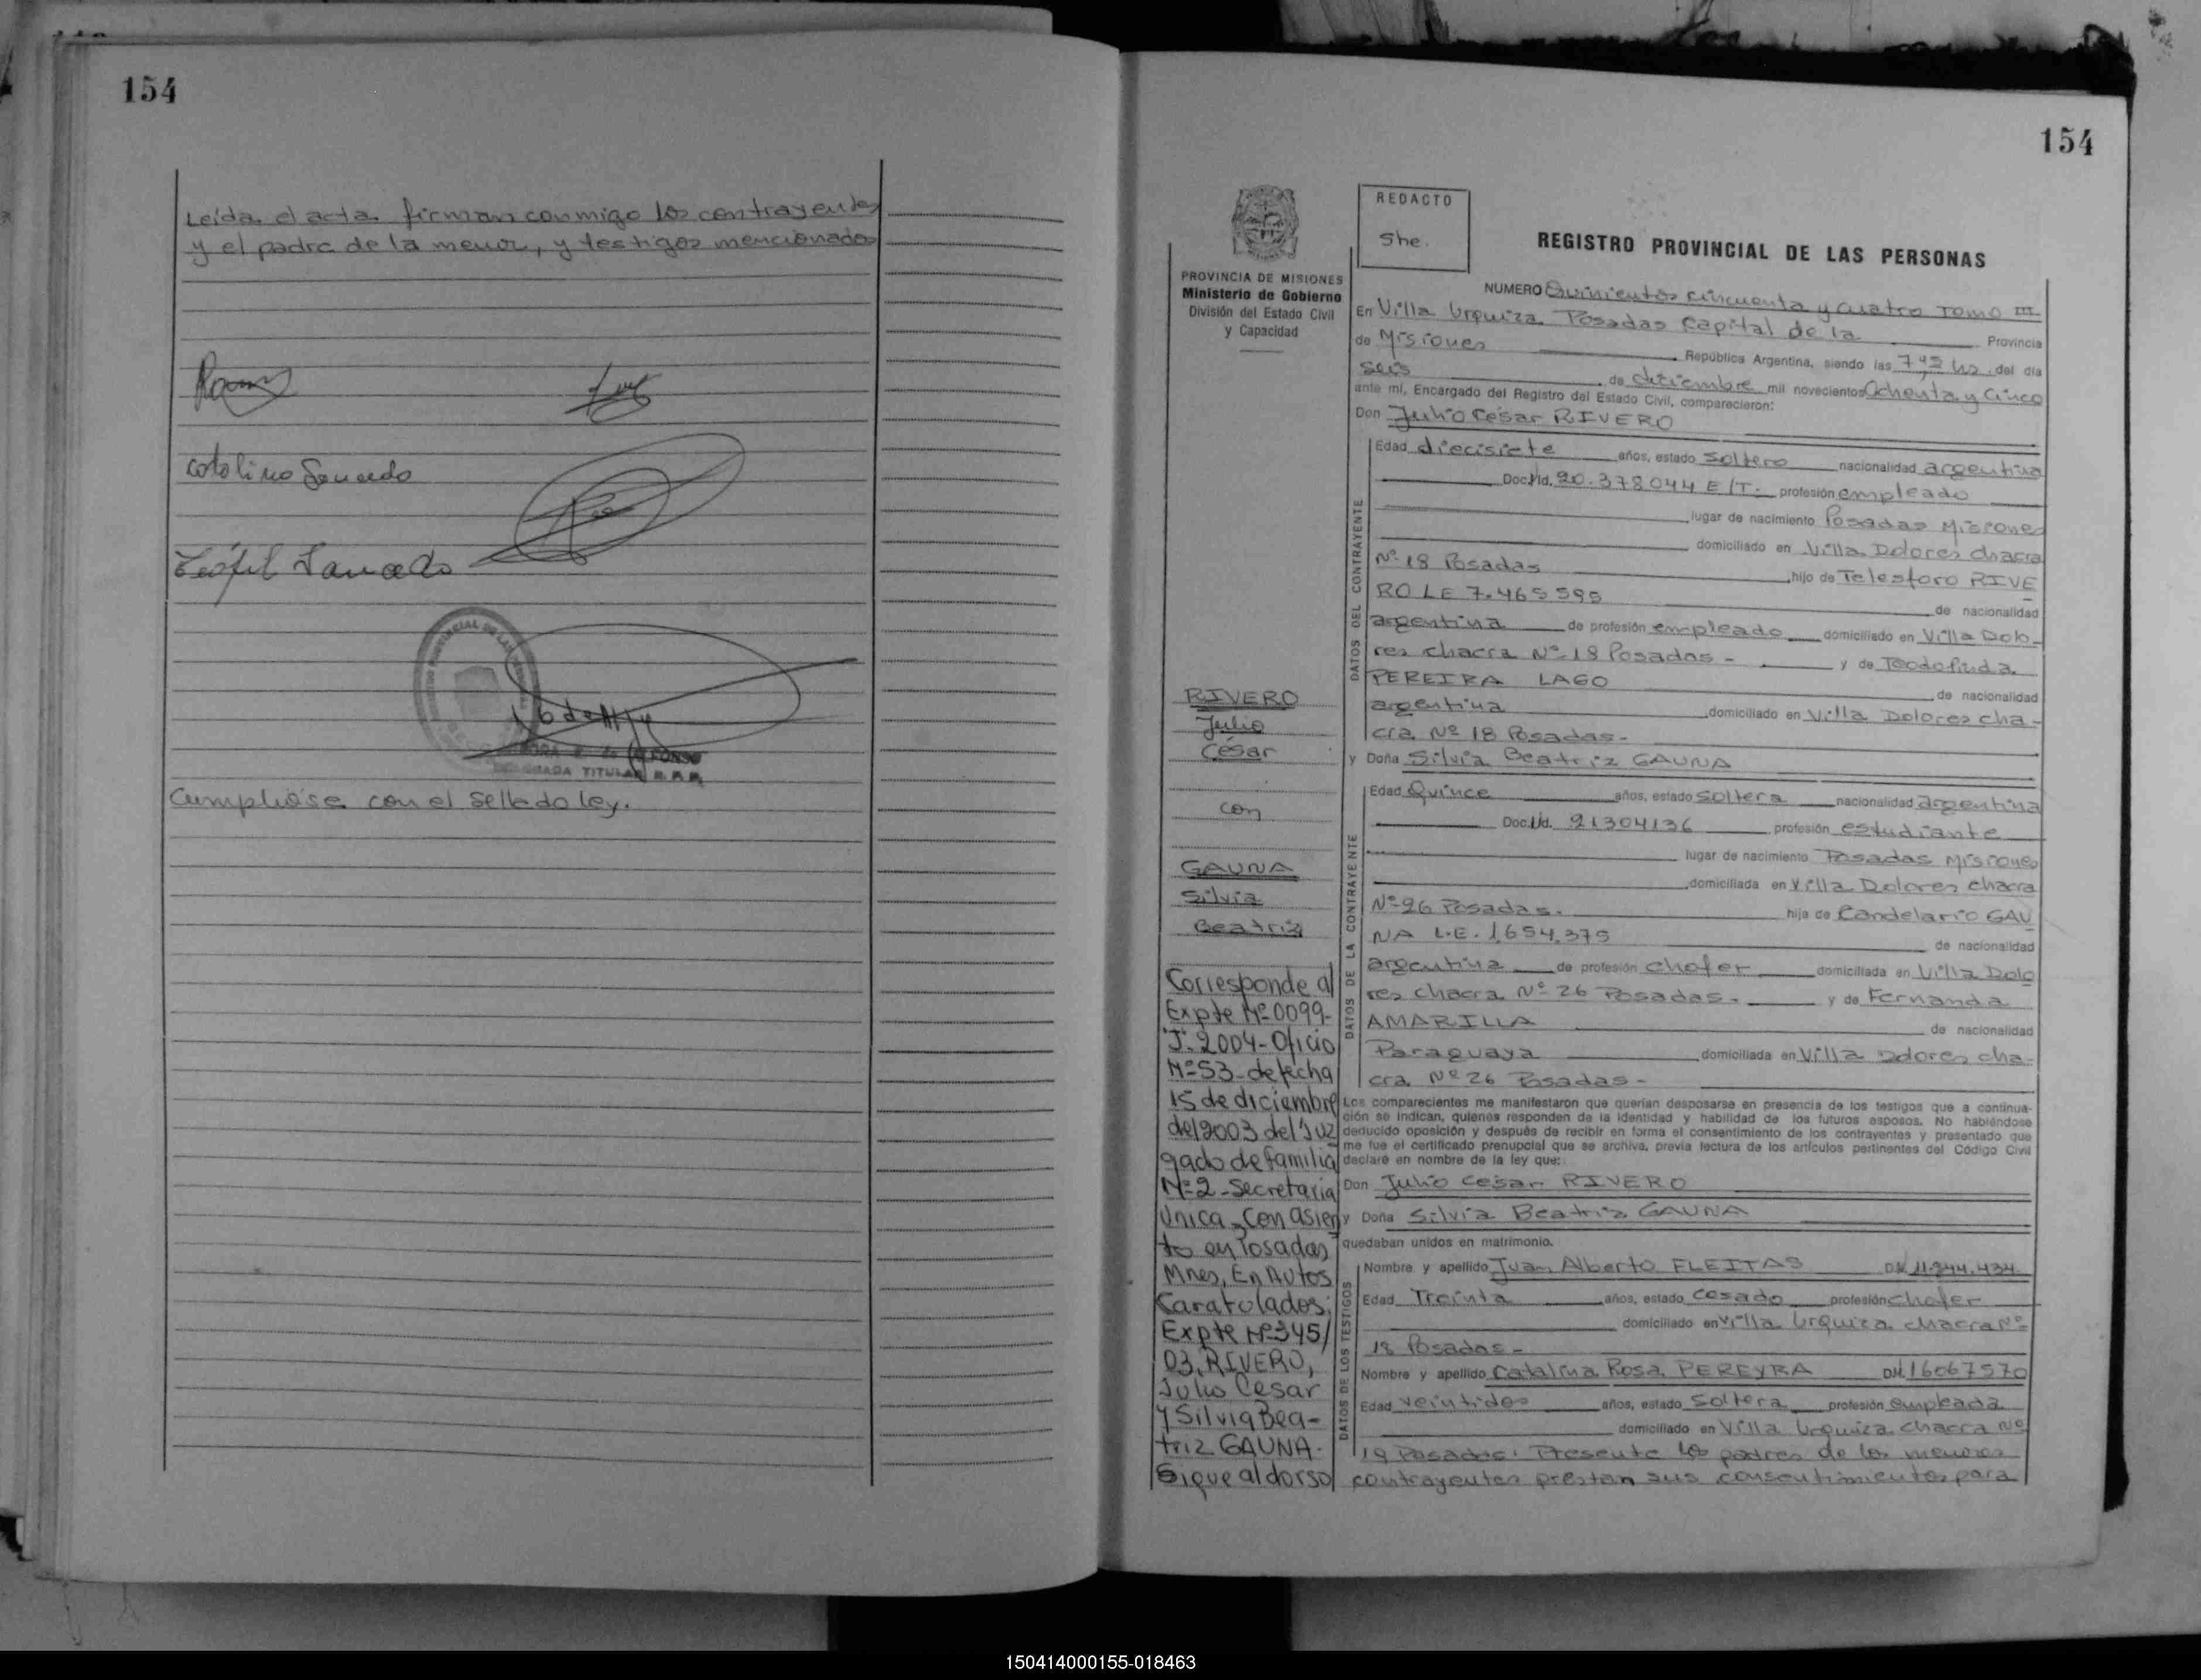 154
Leída el acta firman conmigo los contrayentes
y el padre de la menor, y testigos mencionados
Teófil
Cumplióse con el sellado ley.
154
REDACTO
She.
REGISTRO PROVINCIAL DE LAS PERSONAS
PROVINCIA DE MISIONES
Ministerio de Gobierno
División del Estado Civil
y Capacidad
NUMERO Quinientos cincuenta y cuatro Tomo III
En Villa Urquiza Posadas Capital de la Provincia
de Misiones República Argentina, siendo las 7,45 hs. del día
seis de diciembre mil novecientos Ochenta y Cinco
ante mí, Encargado del Registro del Estado Civil, comparecieron:
Don Julio César RIVERO
DATOS DEL CONTRAYENTE
Edad diecisiete años, estado soltero nacionalidad argentina
Doc. Id. 20.378044 E/T. profesión empleado
lugar de nacimiento Posadas Misiones
domiciliado en Villa Dolores chacra
Nº 18 Posadas hijo de Telesforo RIVE
RO LE 7.465595 de nacionalidad
argentina de profesión empleado domiciliado en Villa Dolo-
res chacra Nº 18 Posadas - y de Teodolinda
PEREIRA LAGO de nacionalidad
argentina domiciliado en Villa Dolores cha-
cra Nº 18 Posadas-
y Doña Silvia Beatriz GAUNA
DATOS DE LA CONTRAYENTE
Edad Quince años, estado soltera nacionalidad argentina
Doc. Id. 21304136 profesión estudiante
lugar de nacimiento Posadas Misiones
domiciliada en Villa Dolores chacra
Nº 26 Posadas. hija de Candelario GAU
NA L.E. 1.654.375 de nacionalidad
argentina de profesión chofer domiciliada en Villa Dolo
res chacra Nº 26 Posadas. y de Fernanda
AMARILLA de nacionalidad
Paraguaya domiciliada en Villa Dolores cha-
cra Nº 26 Posadas-
Los comparecientes me manifestaron que querían desposarse en presencia de los testigos que a continua-
ción se indican, quienes responden de la identidad y habilidad de los futuros esposos. No habiéndose
deducido oposición y después de recibir en forma el consentimiento de los contrayentes y presentado que
me fue el certificado prenupcial que se archiva, previa lectura de los artículos pertinentes del Código Civil
declaré en nombre de la ley que:
Don Julio Cesar RIVERO
y Doña Silvia Beatriz GAUNA
quedaban unidos en matrimonio.
DATOS DE LOS TESTIGOS
Nombre y apellido Juan Alberto FLEITAS DNI 11.944.434.
Edad Treinta años, estado casado profesión chofer
domiciliado en Villa Urquiza chacra Nº
18 Posadas-
Nombre y apellido Catalina Rosa PEREYRA DNI. 16067570
Edad veintidos años, estado soltera profesión empleada
domiciliado en Villa Urquiza chacra Nº
19 Posadas. Presente los padres de los menores
contrayentes prestan sus consentimientos para
RIVERO
Julio
César
con
GAUNA
Silvia
Beatriz
Corresponde al
Expte Nº 0099-
J-2004-Oficio
Nº 53-de fecha
15 de diciembre
del 2003 del Juz
gado de familia
Nº 2-Secretaria
Unica-Con asien
to en Posadas
Mnes, En Autos
Caratulados:
Expte Nº 345/
03, RIVERO,
Julio Cesar
y Silvia Bea-
triz GAUNA-
Sigue al dorso
150414000155-018463